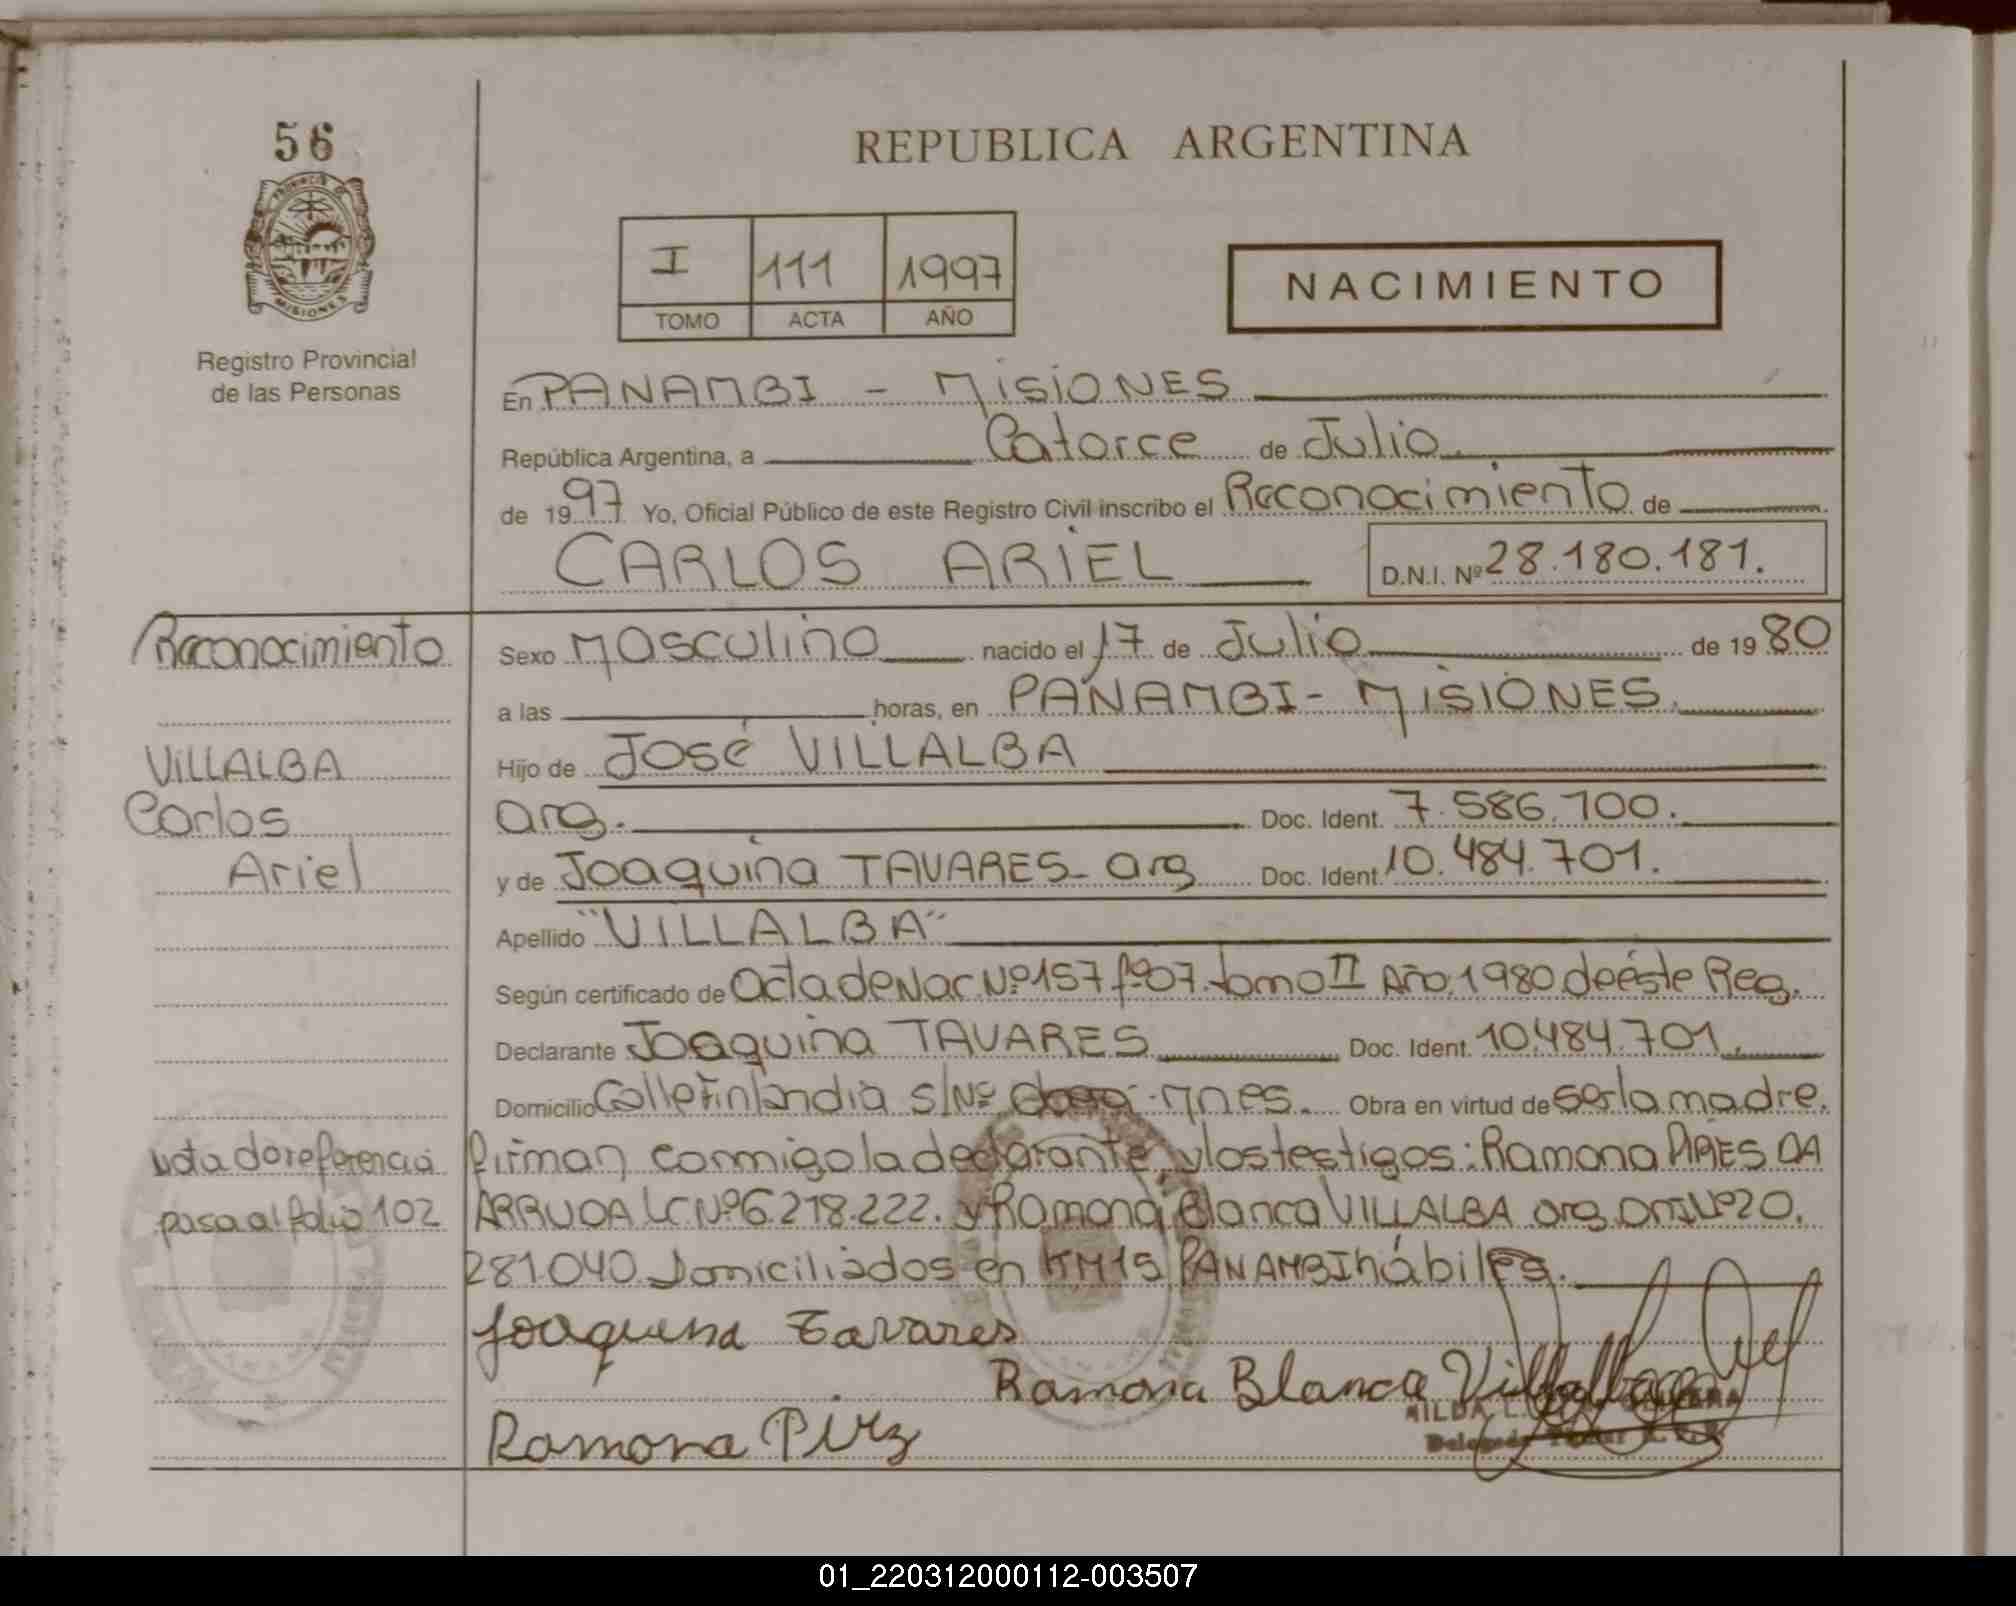 56
REPUBLICA ARGENTINA
I 111 1997
TOMO ACTA AÑO
NACIMIENTO
PROVINCIA DE MISIONES
Registro Provincial
de las Personas
En PANAMBI - MISIONES
República Argentina, a Catorce de Julio
de 1997 Yo, Oficial Público de este Registro Civil inscribo el Reconocimiento de
CARLOS ARIEL D.N.I. Nº 28.180.181.
Reconocimiento
Sexo Masculino nacido el 17 de Julio de 1980
a las horas, en PANAMBI - MISIONES.
VILLALBA
Hijo de José VILLALBA
Carlos
arg. Doc. Ident. 7.586.700.
Ariel
y de Joaquina TAVARES - arg Doc. Ident. 10.484.701.
Apellido "VILLALBA"
Según certificado de acta de Nac Nº 157 fº 07 tomo II Año 1980 de éste Reg.
Declarante Joaquina TAVARES Doc. Ident. 10.484.701.
Domicilio Calle Finlandia s/Nº Mnes. Obra en virtud de ser la madre.
nota de referencia
pasa al folio 102
firman conmigo la declarante y los testigos: Ramona PIRES DA
ARRUDA LC Nº 6.278.222. y Ramona Blanca VILLALBA arg. DNI Nº 20.
281.040 Domiciliados en KM 15 PANAMBI hábiles.
Joaquina Tavares
Ramona Blanca Villalba
HILDA L.
Ramona Pirz
01_220312000112-003507